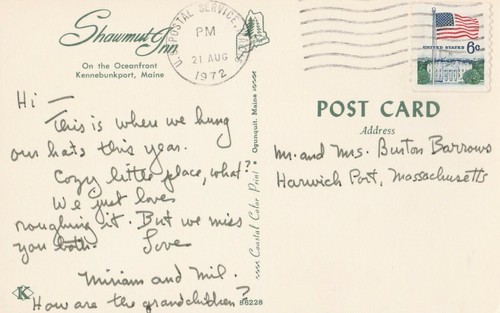 Shawmut Inn
On the Oceanfront
Kennebunkport, Maine
U.S. POSTAL SERVICE
PM
21 AUG
1972
UNITED STATES 6c
Hi —
This is where we hung
our hats this year.
Cozy little place, what?
We just love
roughing it. But we miss
you both. Love
Miriam and Mil.
How are the grandchildren?
K
86228
Coastal Color Print • Ogunquit, Maine
POST CARD
Address
Mr. and Mrs. Burton Barrows
Harwich Port, Massachusetts